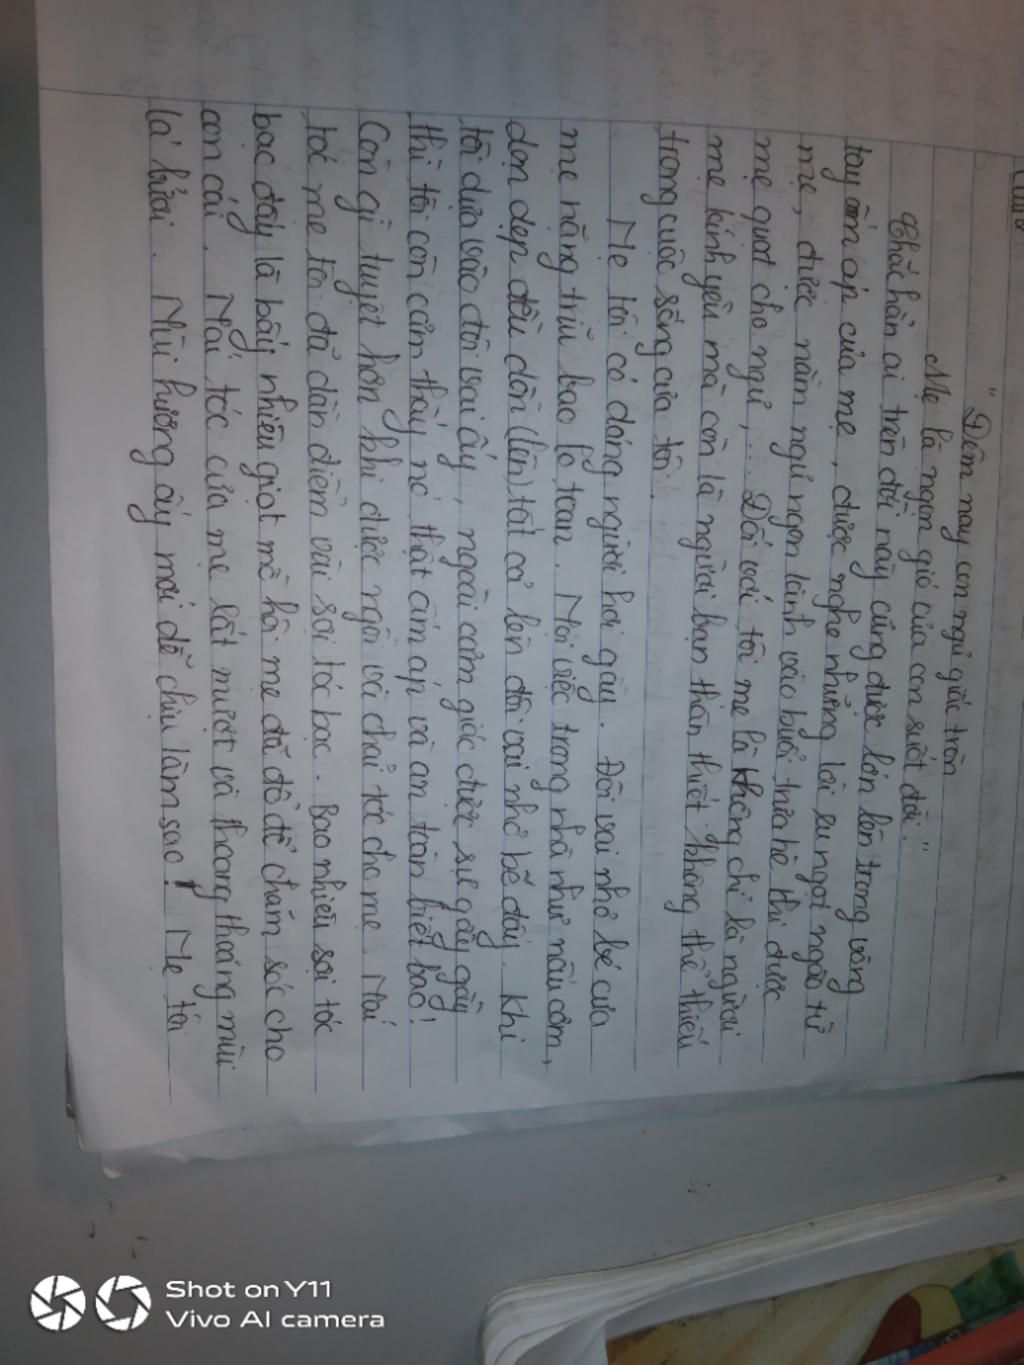 "Đêm nay con ngủ giấc tròn
Mẹ là ngọn gió của con suốt đời."
Chắc hẳn ai trên đời này cũng được lớn lên trong vòng
tay ấm áp của mẹ, được nghe những lời ru ngọt ngào từ
mẹ, được nằm ngủ ngon lành vào buổi trưa hè khi được
mẹ quạt cho ngủ,... Đối với tôi mẹ là không chỉ là người
mẹ kính yêu mà còn là người bạn thân thiết không thể thiếu
trong cuộc sống của tôi.
Mẹ tôi có dáng người hơi gầy. Đôi vai nhỏ bé của
mẹ nặng trĩu bao lo toan. Mọi việc trong nhà như nấu cơm,
dọn dẹp đều dồn (lên) tất cả lên đôi vai nhỏ bé đấy. Khi
tôi dựa vào đôi vai ấy, ngoài cảm giác được sự gầy gầy
thì tôi còn cảm thấy nó thật ấm áp và an toàn biết bao!
Còn gì tuyệt hơn khi được ngồi và chải tóc cho mẹ. Mái
tóc mẹ tôi đã dần điểm vài sợi tóc bạc. Bao nhiêu sợi tóc
bạc đấy là bấy nhiêu giọt mồ hôi mẹ đã đổ để chăm sóc cho
con cái. Mái tóc của mẹ rất mượt và thoang thoảng mùi
lá bưởi. Mùi hương ấy mới dễ chịu làm sao! Mẹ tôi
Shot on Y11
Vivo AI camera